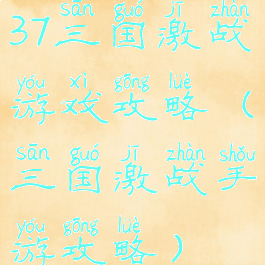 sān guó jī zhàn
37三国激战
yóu xì gōng lüè
游戏攻略（
sān guó jī zhàn shǒu
三国激战手
yóu gōng lüè
游攻略）